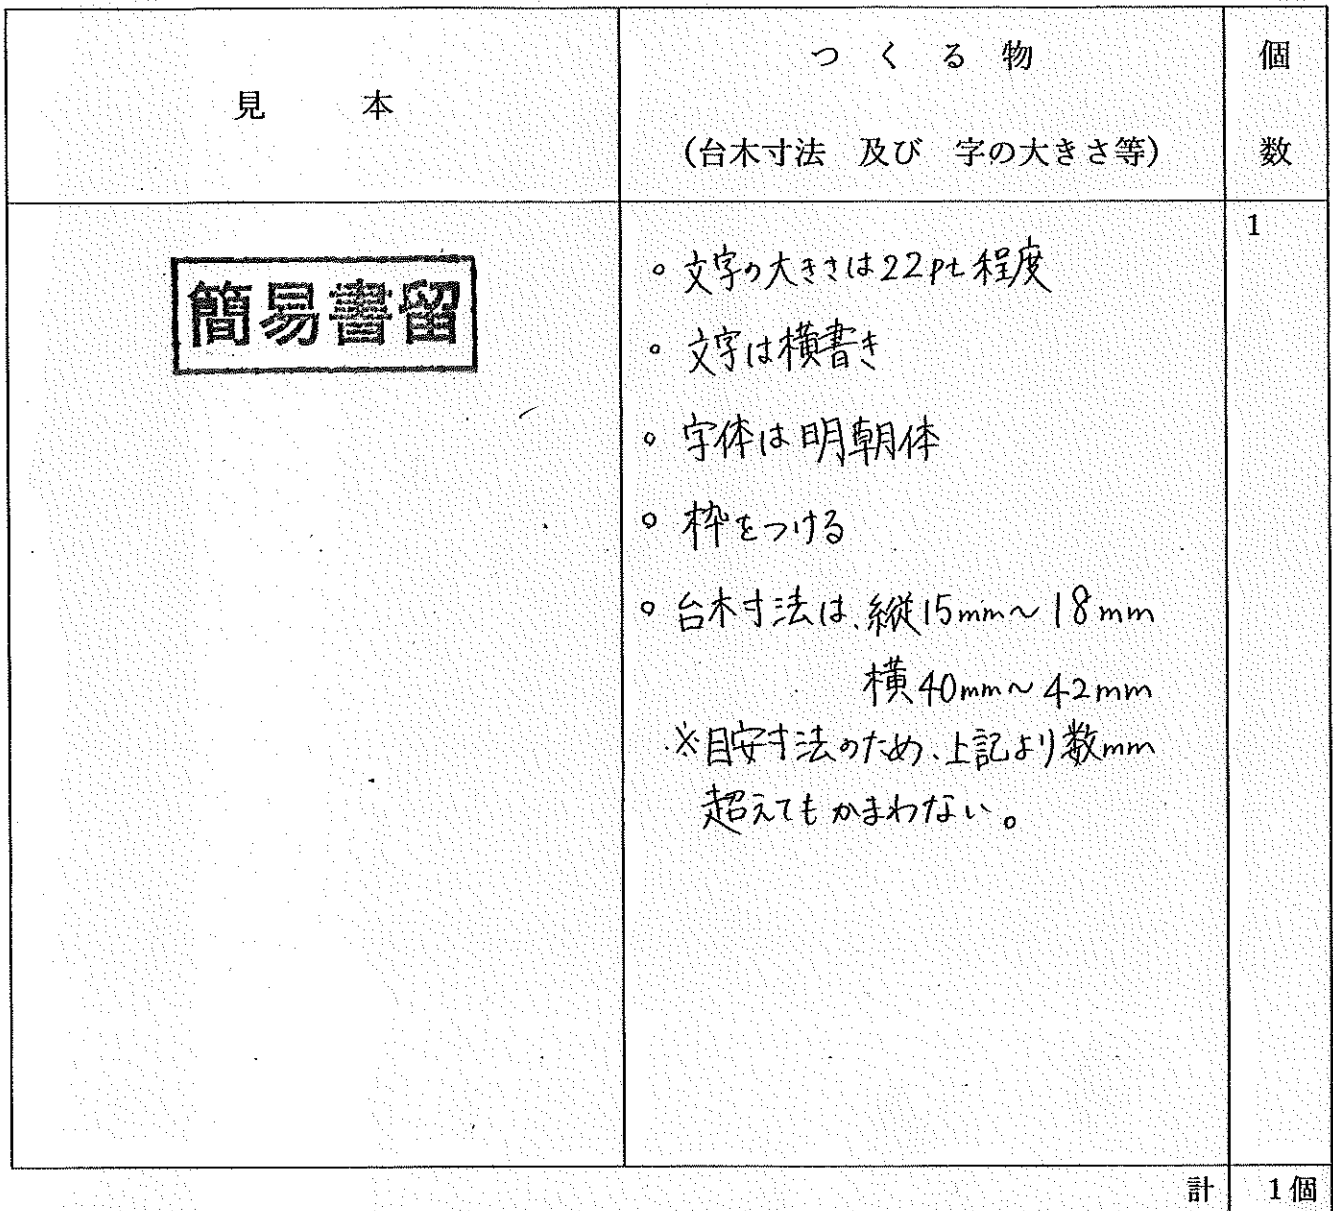 見 本
つくる物
(台木寸法 及び 字の大きさ等)
個
数
簡易書留
。文字の大きさは22pt程度
。文字は横書き
。字体は明朝体
。枠をつける
。台木寸法は、縦15mm～18mm
横40mm～42mm
※目安寸法のため、上記より数mm
超えてもかまわない。
1
計 1個